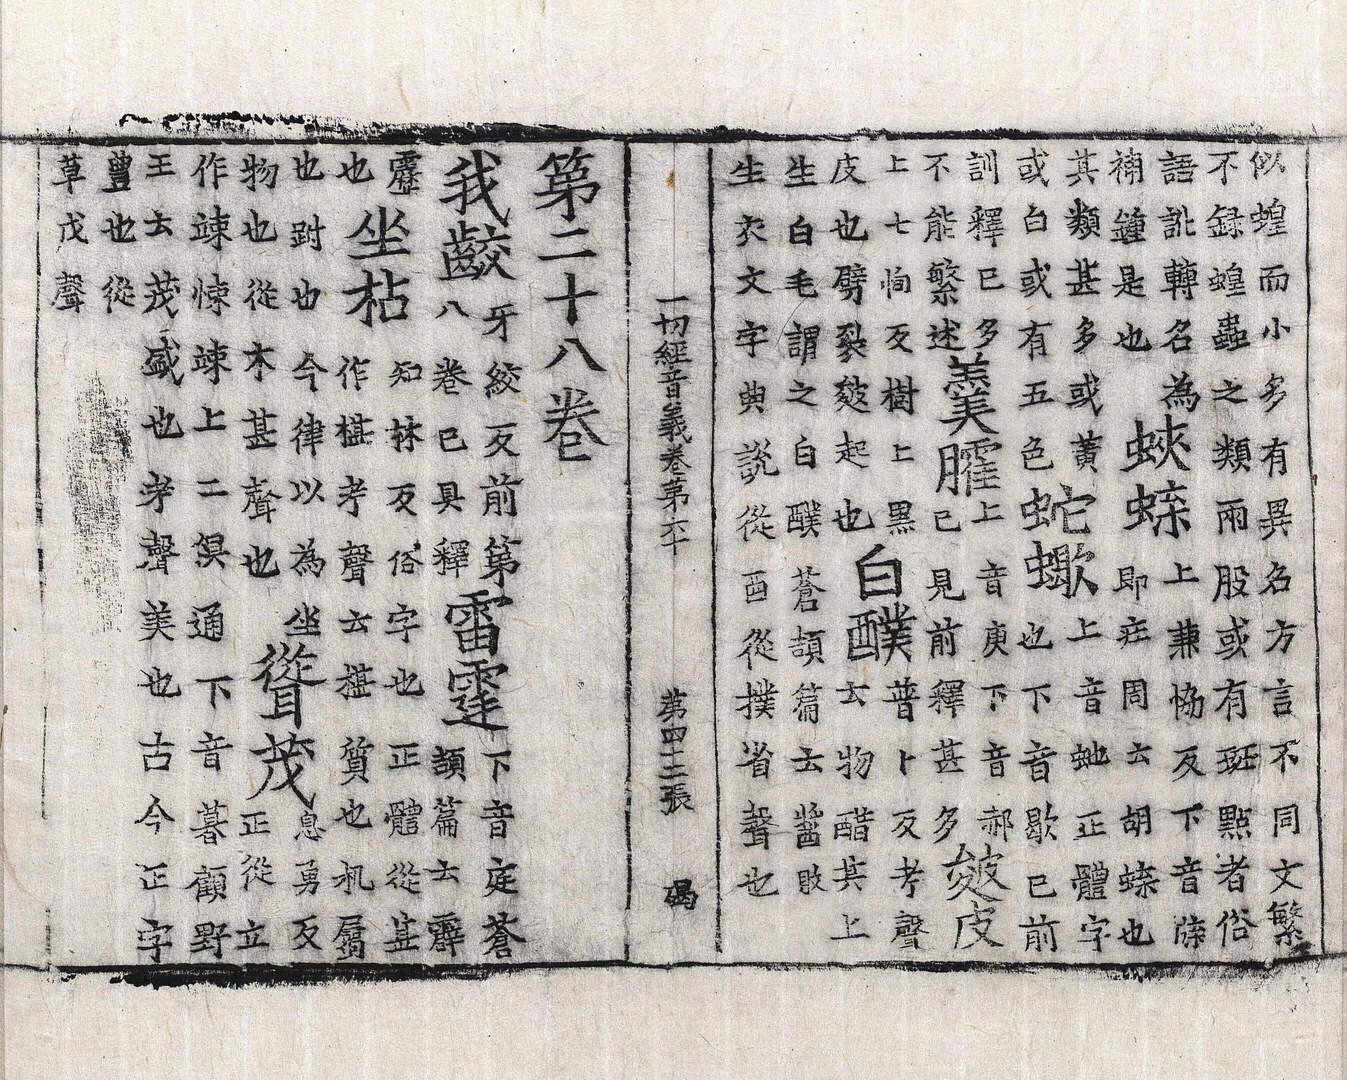 似蝗而小多有異名方言不同文繁
不録蝗蟲之類兩股或有斑點者俗
語訛轉名為
補鍾是也
蛺蝶
上兼恊反下音牒
即庄周云胡蝶也
其類甚多或黃
或白或有五色
蛇蠍
上音虵正體字
也下音歇已前
訓釋已多
不能繁述
羹臛
上音庚下音郝
已見前釋甚多
皴皮
上七恂反樹上黑
皮也劈裂皴起也
白醭
普卜反考聲
云物醋其上
生白毛謂之白醭蒼頡篇云醬敗
生衣文字典說從酉從撲省聲也
一切經音義卷第六十
第四十二張
碣
第二十八卷
我齩
牙絞反前第
八卷已具釋
雷霆
下音庭蒼
頡篇云霹
靂
也
坐枮
知林反俗字也正體從甚
作椹考聲云椹質也机屬
也跗也今律以為坐
物也從木甚聲也
聳茂
息勇反
正從立
作竦悚竦上二㒵通下音暮顧野
王云茂盛也考聲美也古今正字
豐也從
草戊聲